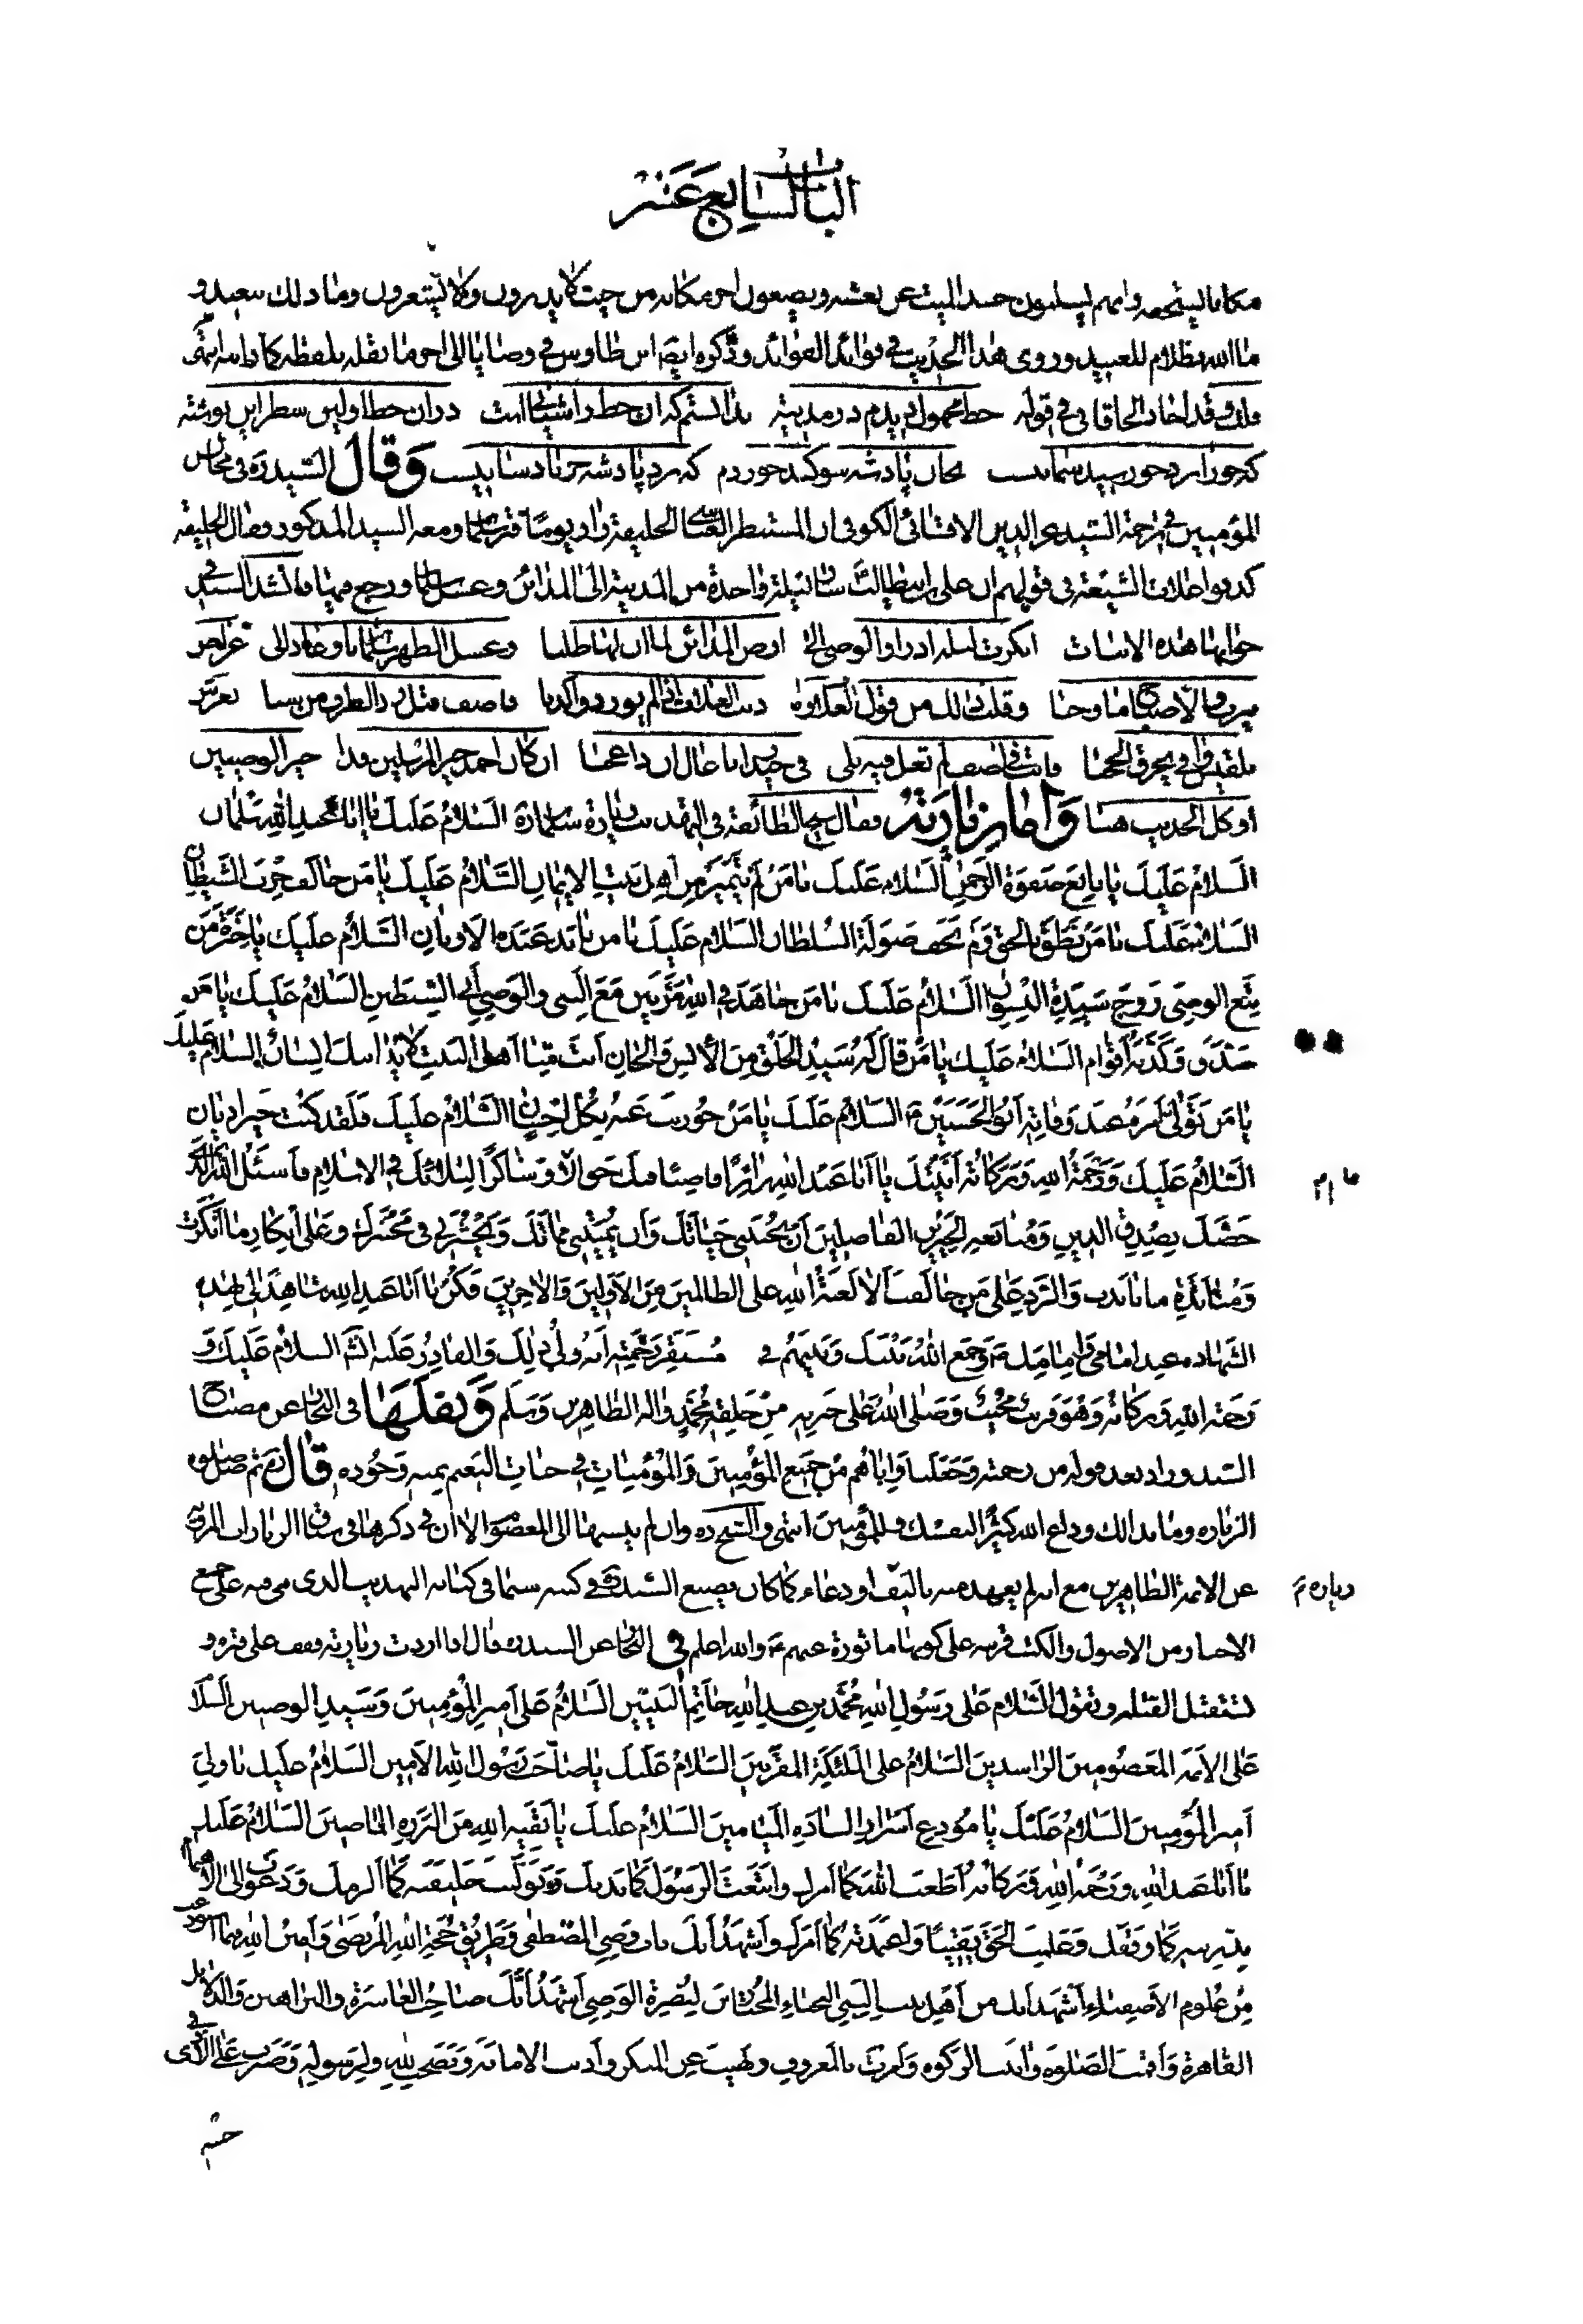 الباب السابع عشر
مكانا يستحقه وانهم ليسلبون جسد الميت عن نعشه ويضعون آخر مكانه من حيث لا يدرون ولا يشعرون وما ذلك ببعيد و
ما الله بظلام للعبيد وروى هذا الحديث في فوائد الفوائد وذكره ايضا ابن طاوس في وصاياه الى آخر ما نقله بلفظه كما رايته انتهى
قلت وقد اجاد الخاقاني في قوله خط مجهول بديدم در مدينه بدانستم كه آن خط راشنا نيست در آن خط اولين سطر اين نوشته
كه جوزا نزد خورشيد سما نيست بجان پادشه سوگند خوردم كه نزد پادشه جز پادشا نيست وقال السيد ره في مجالس
المؤمنين في ترجمة السيد عز الدين الاقساسي الكوفي ان المستنصر العباسي الخليفة زار يوما قبر سلمان ومعه السيد المذكور فقال الخليفة
كذبوا غلاة الشيعة في قولهم ان علي بن ابيطالب سار في ليلة واحدة من المدينة الى المدائن وغسل سلمان ورجع فيها فانشد السيد في
جوابها هذه الابيات انكرت ليلة اذ زار الوصي الى ارض المدائن لما ان لها طلبا وغسل الطهر سلمانا وعاد الى عراص
يثرب والاصباح ما وجبا وقلت ذلك من قول الغلاة وما ذنب الغلاة اذا لم يوردوا كذبا فاصف قبل رد الطرف من سبا بعرش
بلقيس وافى يخرق الحجبا فانت في آصف لم تغل فيه بلى في حيدر انا غال ان ذا عجبا ان كان احمد خير المرسلين فذا خير الوصيين
او كل الحديث هبا واما زيارته فقال شيخ الطائفة في التهذيب زيارة سلمان ره السلام عليك يا ابا عبد الله سلمان
السلام عليك يا تابع صفوة الرحمن السلام عليك يا من لم يتميز من اهل بيت الايمان السلام عليك يا من خالف حزب الشيطان
السلام عليك يا من نطق بالحق ولم يخف صولة السلطان السلام عليك يا من نابذ عبدة الاوثان السلام عليك يا خير من
تبع الوصي زوج سيدة النسوان السلام عليك يا من جاهد في الله مرتين مع النبي والوصي ابي السبطين السلام عليك يا من
صدق وكذبه اقوام السلام عليك يا من قال له سيد الخلق من الانس والجان انت منا اهل البيت لا يدانيك انسان السلام عليك
يا من تولى امره عند وفاته ابو الحسنين ع السلام عليك يا من جوزيت عنه بكل احسان السلام عليك فلقد كنت خير اديان
السلام عليك ورحمة الله وبركاته اتيتك يا ابا عبد الله زائرا قاضيا فيك حق الامام وشاكرا لبلائك في الاسلام فاسئل الله الذي
خصك بصدق الدين ومتابعة الخيرين الفاضلين ان يحييني حياتك وان يميتني مماتك ويحشرني في محشرك وعلى انكار ما انكرت
ومنابذة ما نابذت والرد على من خالفت الا لعنة الله على الظالمين من الاولين والآخرين فكن يا ابا عبد الله شاهدا لي بهذه
الشهادة عند امامي وامامك ع وجمع الله بيننا وبينهم في مستقر رحمته انه ولي ذلك والقادر عليه انشم السلام عليك و
رحمة الله وبركاته وهو قريب مجيب وصلى الله على خيرته من خلقه محمد وآله الطاهرين وسلم ونقلها في البحار عن مصباح
السيد وزاد بعد قوله من رحمته وجعلنا واياهم من جميع المؤمنين والمؤمنات في جنات النعيم بمنه وجوده قال ره ثم صل صلوة
الزيارة وما بدالك وادع الله كثيرا لنفسك وللمؤمنين انتهى والشيخ ره وان لم ينسبها الى المعصوم الا ان في ذكرها في سياق الزيارات المروية
عن الائمة الطاهرين مع انه لم يعهد منه تاليف او دعاء كما كان يصنع السيد ره في كتبه سيما في كتابه التهذيب الذي بنى فيه على جمع
زياره م
الاخبار من الاصول والكتب قرينة على كونها ماثورة عنهم ع والله اعلم في البحار عن السيد ره قال اذا اردت زيارته فقف على قبره و
تستقبل القبلة وتقول السلام على رسول الله محمد بن عبد الله خاتم النبيين السلام على امير المؤمنين وسيد الوصيين السلام
على الائمة المعصومين الراشدين السلام على الملائكة المقربين السلام عليك يا صاحب رسول الله الامين السلام عليك يا ولي
امير المؤمنين السلام عليك يا مودع اسرار السادة الميامين السلام عليك يا بقية الله من البررة الماضين السلام عليك
يا ابا عبد الله ورحمة الله وبركاته اطعت الله كما امرك واتبعت الرسول كما ندبك وتوليت خليفته كما الزمك ودعوت الى الاهتمام
بذريته كما وقفك وعلمت الحق يقينا واعتمدته كما امرك واشهد انك باب وصي المصطفى وطريق حجة الله المرتضى وامين الله فيما استودعت
من علوم الاصفياء اشهد انك من اهل بيت النبي النجباء المختارين لنصرة الوصي اشهد انك صاحب العاشرة والبراهين والدلائل
القاهرة واقمت الصلوة وآتيت الزكوة وامرت بالمعروف ونهيت عن المنكر واديت الامانة ونصحت لله ولرسوله وصبرت على الاذى في
جنبه